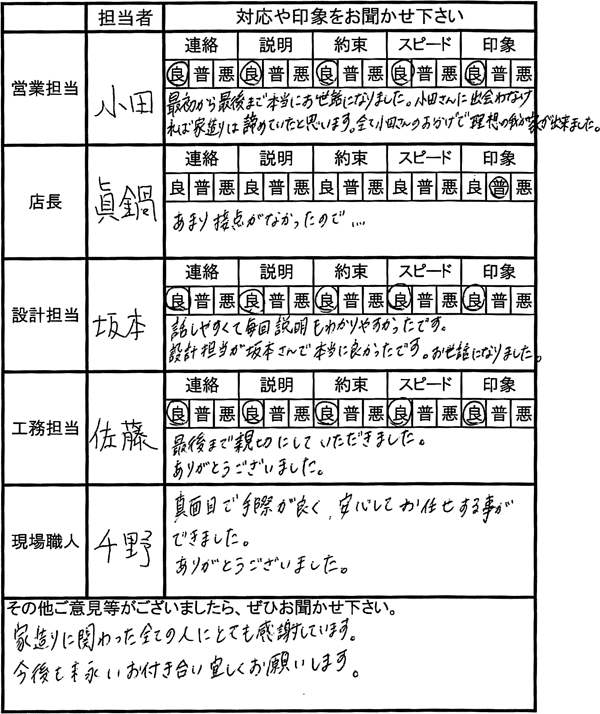 担当者 対応や印象をお聞かせ下さい
営業担当 小田
連絡 説明 約束 スピード 印象
良 普 悪 良 普 悪 良 普 悪 良 普 悪 良 普 悪
最初から最後まで本当にお世話になりました。小田さんに出会わなけ
れば家造りは諦めていたと思います。全て小田さんのおかげで理想の我が家が出来ました。
店長 眞鍋
連絡 説明 約束 スピード 印象
良 普 悪 良 普 悪 良 普 悪 良 普 悪 良 普 悪
あまり接点がなかったので…
設計担当 坂本
連絡 説明 約束 スピード 印象
良 普 悪 良 普 悪 良 普 悪 良 普 悪 良 普 悪
話しやすくて毎回説明もわかりやすかったです。
設計担当が坂本さんで本当に良かったです。お世話になりました。
工務担当 佐藤
連絡 説明 約束 スピード 印象
良 普 悪 良 普 悪 良 普 悪 良 普 悪 良 普 悪
最後まで親切にしていただきました。
ありがとうございました。
現場職人 千野
真面目で手際が良く、安心してお任せする事が
できました。
ありがとうございました。
その他ご意見等がございましたら、ぜひお聞かせ下さい。
家造りに関わった全ての人にとても感謝しています。
今後も末永いお付き合い宜しくお願いします。